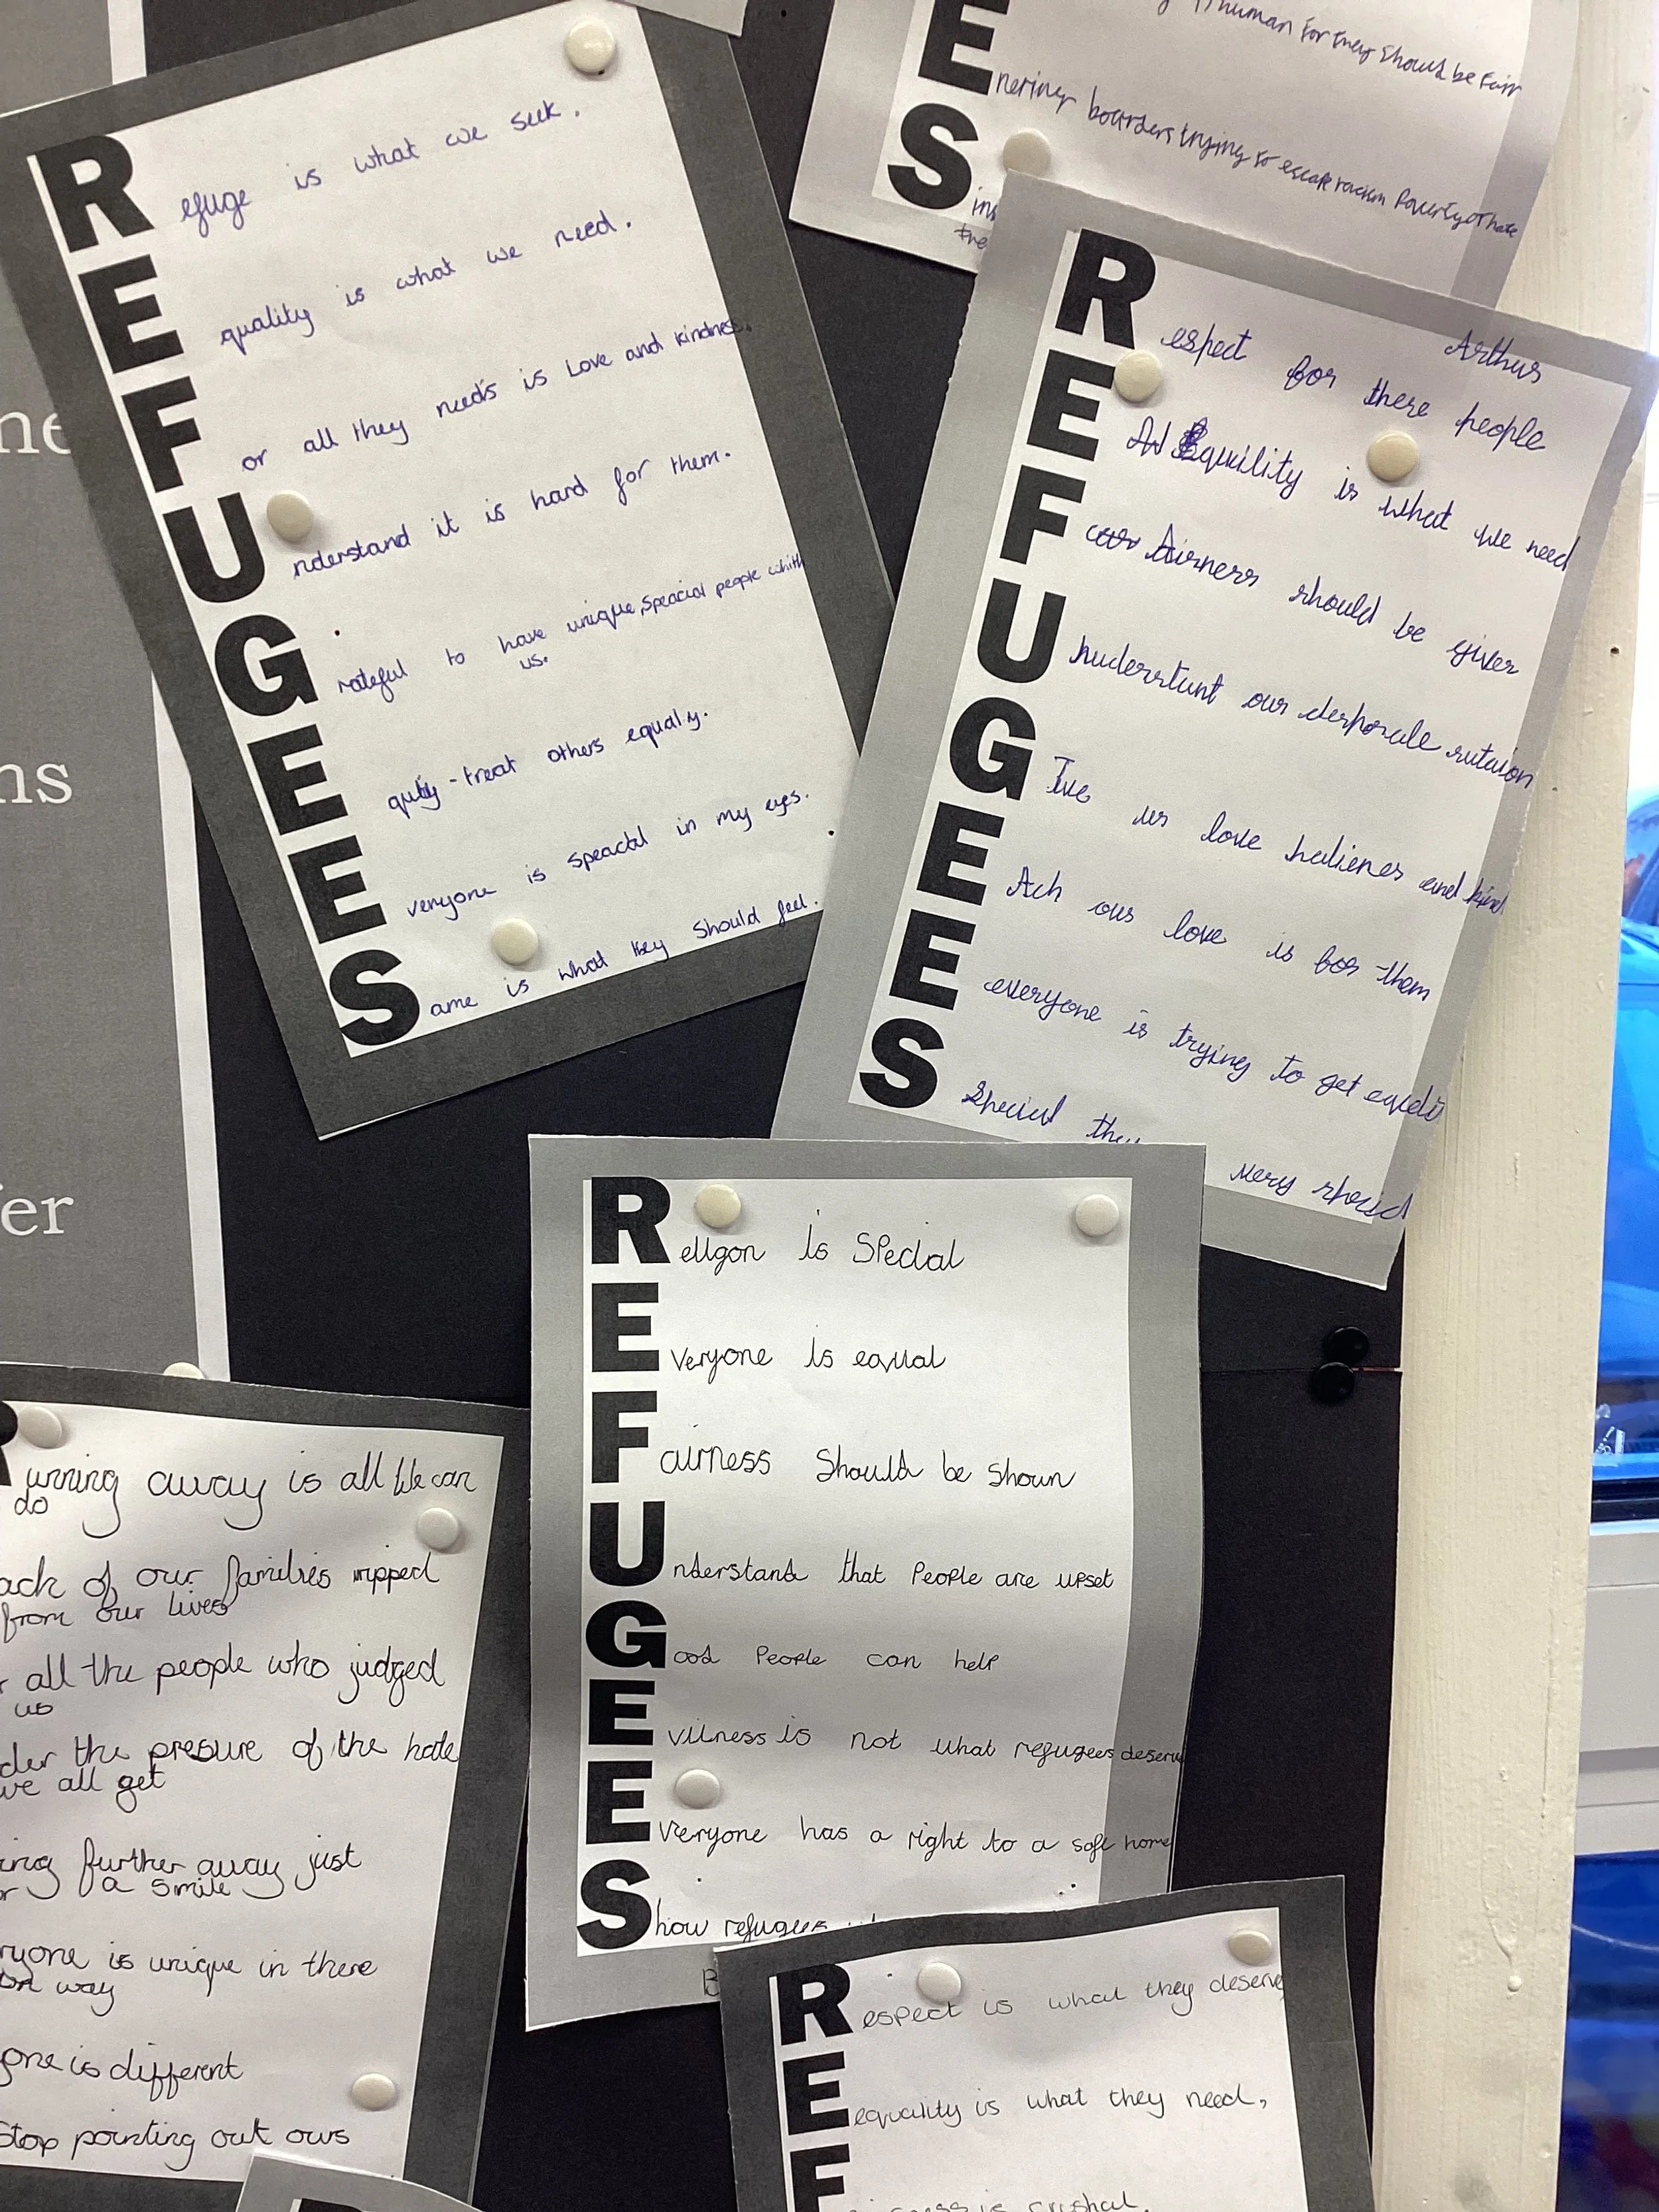 Refuge is what we seek.
Equality is what we need.
For all they needs is Love and kindnes.
Understand it is hard for them.
Grateful to have unique, speacial people whith
us.
Equity - treat others equaly.
Everyone is speactal in my eyes.
Same is what they Should feel.
human for they should be Fair
E
boarders trying to escape racism Poverty or hate
S
Arthur
Respect for there people
E Equility is what we need
Fairness should be given
U our
G Ive us love and kind
EAch our love is for them
E everyone is trying to get
S Special
very
Religon is SPecial
Everyone is equal
Fairness Should be Shown
Understand that PeoPle are uPset
Good PeoPle can help
Evilness is not what refugees deserve
Everyone has a right to a safe home
Show refugees
ne
ns
er
Running away is all We can
do
ack of our families ripped
from our lives
all the people who judged
us
der the presure of the hate
we all get
ing further away just
or a smile
ryone is unique in there
way
yone is different
Stop pointing out ours
Respect is what they deserve
E equality is what they need,
F
is crushal.